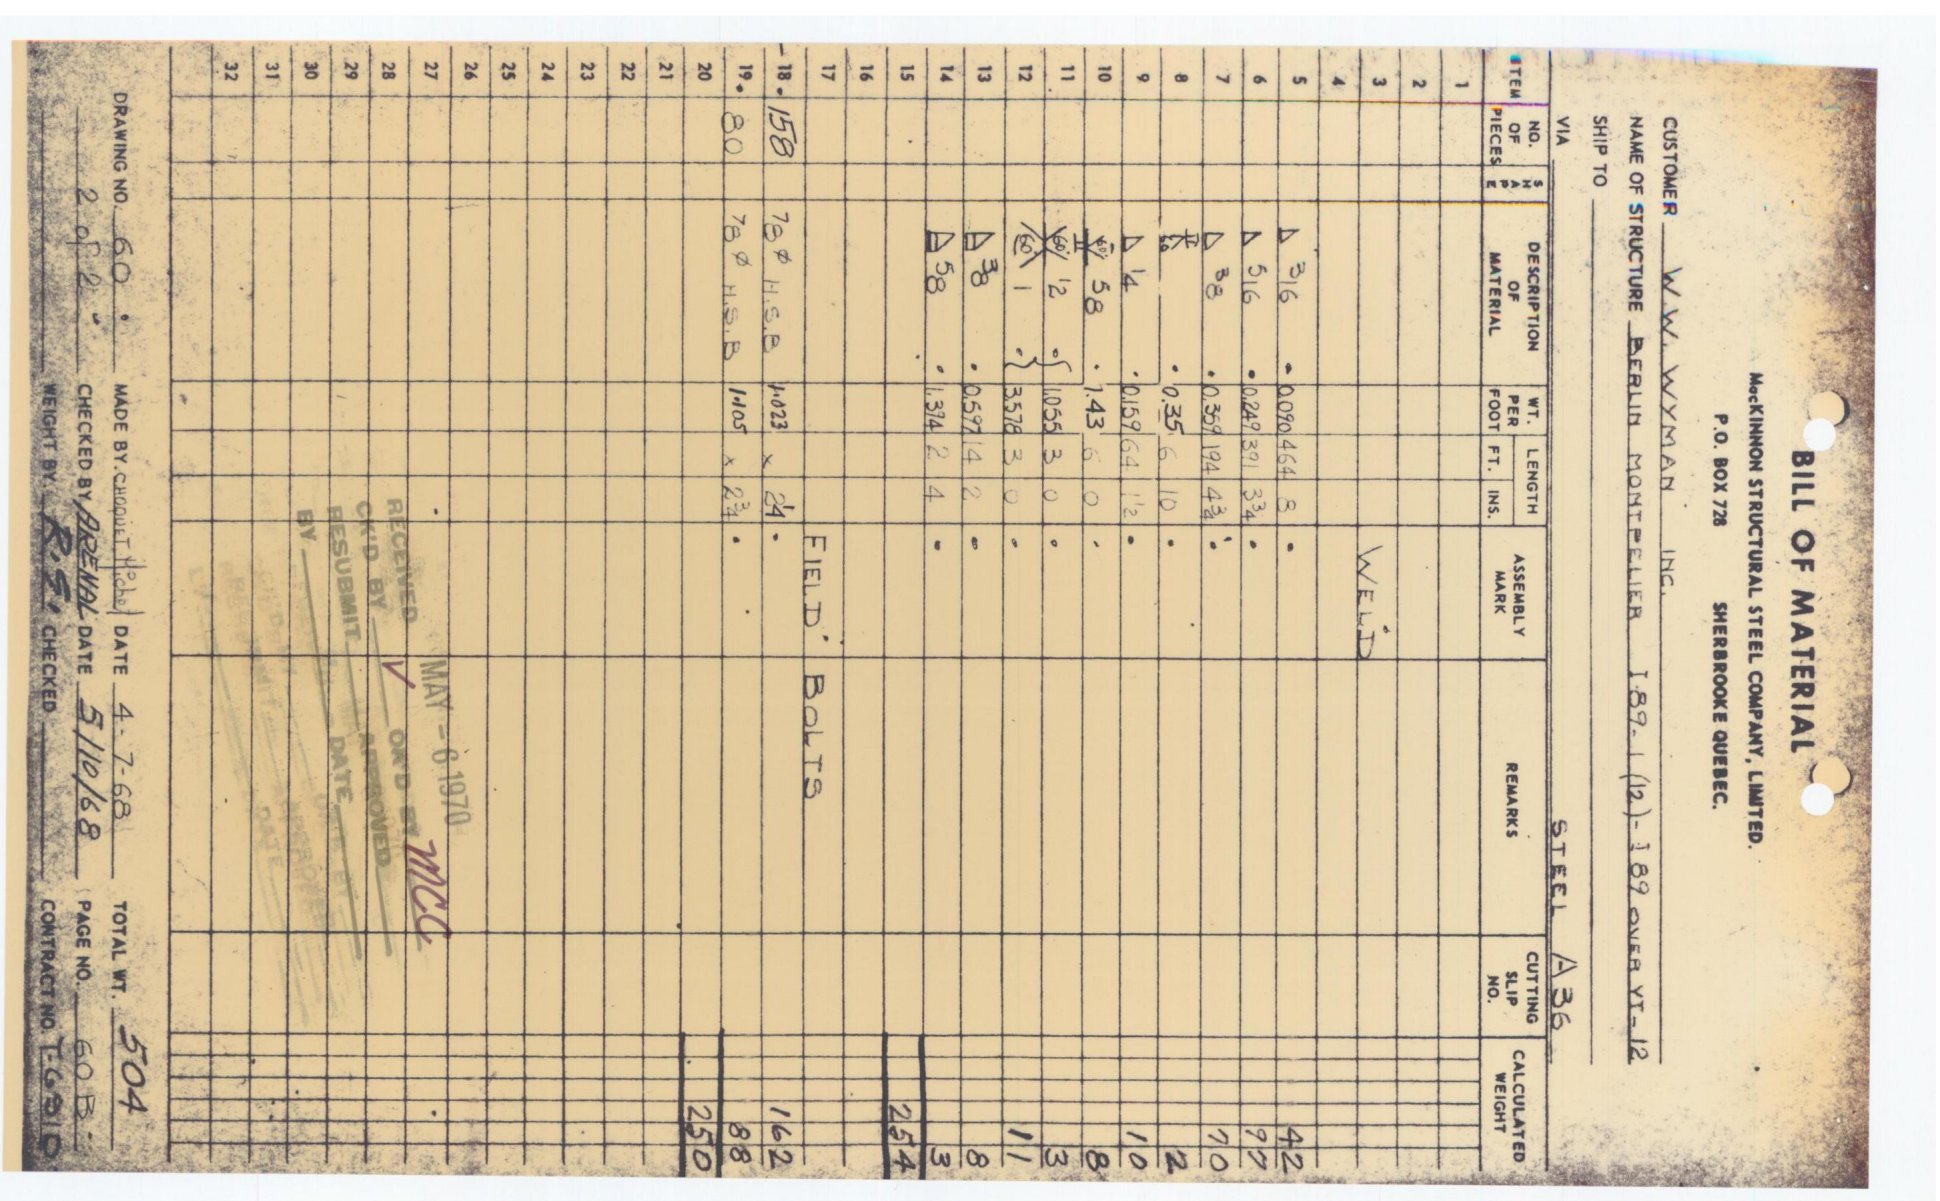 BILL OF MATERIAL
MacKINNON STRUCTURAL STEEL COMPANY, LIMITED.
P.O. BOX 728 SHERBROOKE QUEBEC.
CUSTOMER W.W. WYMAN INC.
NAME OF STRUCTURE BERLIN MONTPELIER I-89-1(12)-I89 OVER VT-12
SHIP TO
VIA STEEL A36
ITEM NO. OF PIECES SHAPE DESCRIPTION OF MATERIAL WT. PER FOOT LENGTH FT. INS. ASSEMBLY MARK REMARKS CUTTING SLIP NO. CALCULATED WEIGHT
1
2
3 WELD
4
5 3/16 0.090 464 8 42
6 5/16 0.249 391 3 3/4 97
7 3/8 0.359 194 4 3/4 70
8 60 0.35 6 10 2
9 1/4 0.159 64 1/2 10
10 60° 5/8 1.43 6 0 8
11 60° 1/2 1.055 3 0 3
12 60° 1 3.578 3 0 11
13 3/8 0.597 14 2 8
14 5/8 1.374 2 4 3
15 254
16
17 FIELD BOLTS
18 158 7/8 ø H.S.B 1.023 x 2 1/4 162
19 80 7/8 ø H.S.B 1.105 x 2 3/4 88
20 250
21
22
23
24
25
26
27
28
29
30
31
32
MAY - 6 1970
RECEIVED
CK'D BY OK'D BY MCC
RESUBMIT APPROVED
BY DATE
DRAWING NO. 60 MADE BY. CHOQUET Michel DATE 4-7-68 TOTAL WT. 504
2 of 2 CHECKED BY ARENAL DATE 5/10/68 PAGE NO. 60 B
WEIGHT BY. R.E. CHECKED CONTRACT NO.